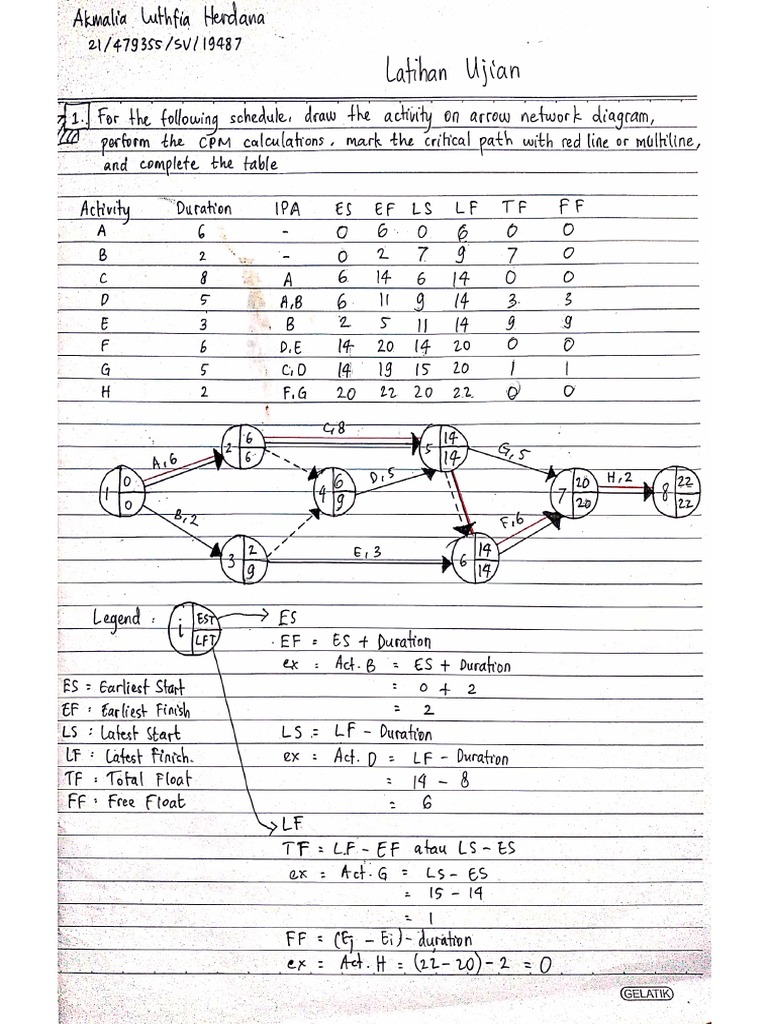 Akmalia Luthfia Herdana
21/479355/SV/19487
Latihan Ujian
1. For the following schedule, draw the activity on arrow network diagram,
perform the CPM calculations, mark the critical path with red line or multiline,
and complete the table
Activity Duration IPA ES EF LS LF TF FF
A 6 - 0 6 0 6 0 0
B 2 - 0 2 7 9 7 0
C 8 A 6 14 6 14 0 0
D 5 A,B 6 11 9 14 3 3
E 3 B 2 5 11 14 9 9
F 6 D,E 14 20 14 20 0 0
G 5 C,D 14 19 15 20 1 1
H 2 F,G 20 22 20 22 0 0
C,8
2 6 6
5 14 14
A,6
G,5
1 0 0
4 6 9
D,5
7 20 20
H,2
8 22 22
B,2
F,6
3 2 9
E,3
6 14 14
Legend : i EST LFT
ES
EF = ES + Duration
ex : Act. B = ES + Duration
ES = Earliest Start
= 0 + 2
EF : Earliest Finish
= 2
LS : Latest Start
LS = LF - Duration
LF : Latest Finish.
ex : Act. D = LF - Duration
TF : Total Float
= 14 - 8
FF : Free Float
= 6
LF
TF = LF - EF atau LS - ES
ex = Act. G = LS - ES
= 15 - 14
= 1
FF = (Ej - Ei) - duration
ex = Act. H = (22-20) - 2 = 0
GELATIK